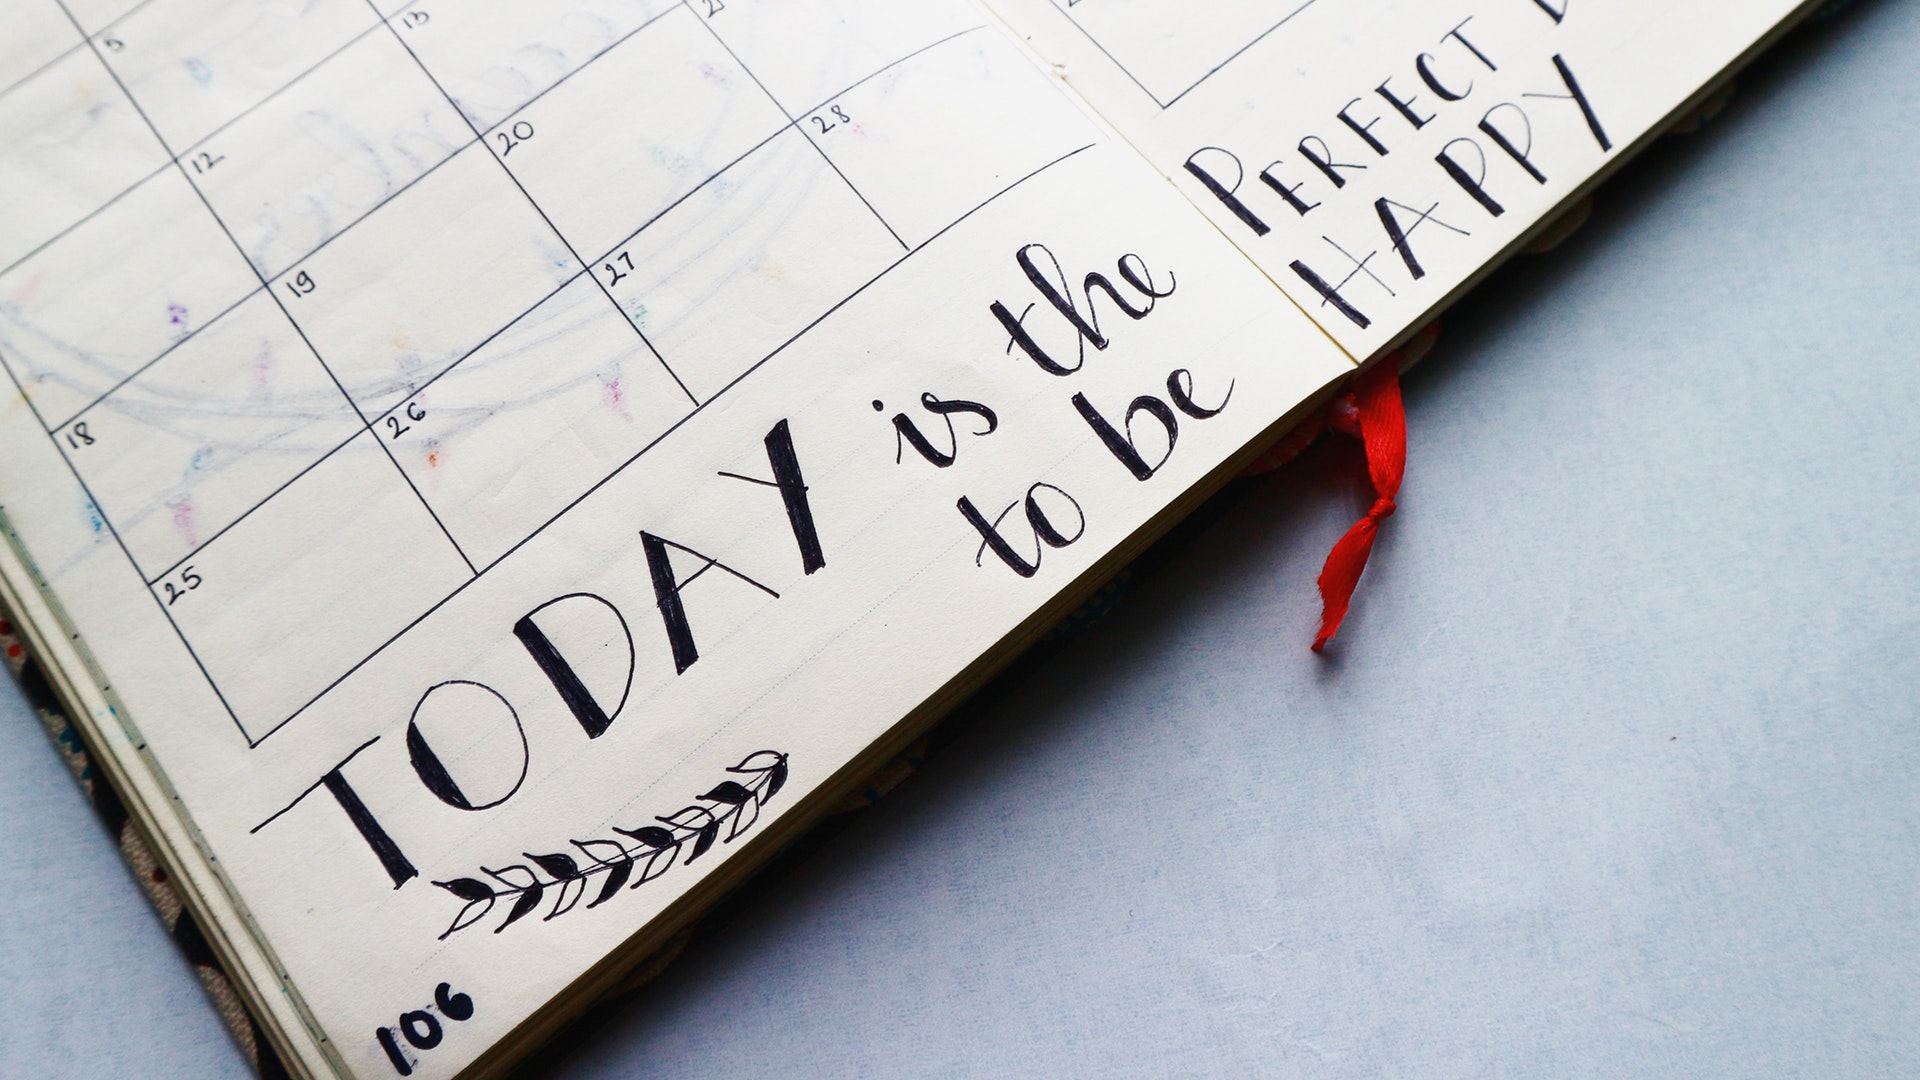 5
12 13
18 19 20
25 26 27 28
TODAY is the PERFECT
to be HAPPY
106